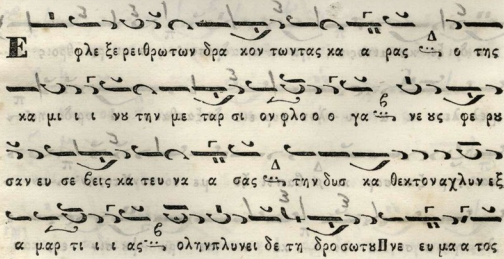 Ε φλε ξε ρειθρωτων δρα κον τωντας κα α ρας ο της
κα μι ι ι νυ την με ταρ σι ον φλο ο ο γα νε υς φε ρυ
σαν ευ σε βεις κα τευ να α σας την δυσ κα θεκτον αχλυν εξ
α μαρ τι ι ι ας ολην πλυνει δε τη δροσω τυ Πνε ευ μα α τος